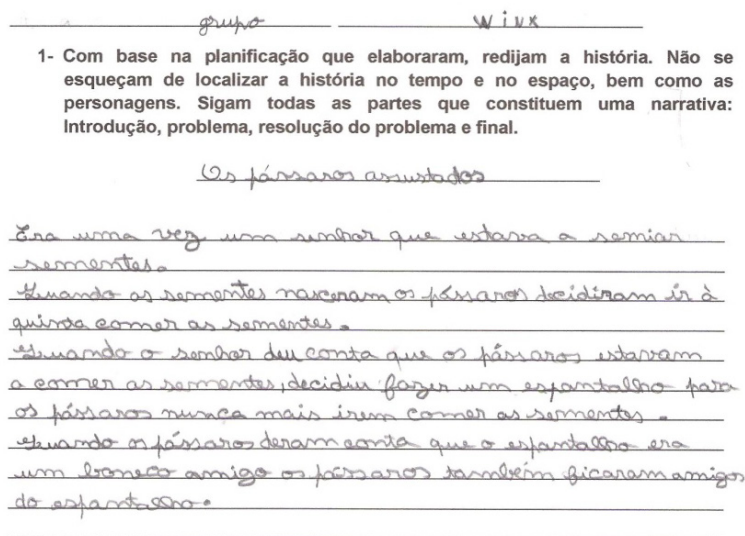 grupo Winx
1- Com base na planificação que elaboraram, redijam a história. Não se
esqueçam de localizar a história no tempo e no espaço, bem como as
personagens. Sigam todas as partes que constituem uma narrativa:
Introdução, problema, resolução do problema e final.
Os pássaros assustados
Era uma vez um senhor que estava a semiar
sementes.
Quando as sementes nasceram os pássaros decidiram ir à
quinta comer as sementes.
Quando o senhor deu conta que os pássaros estavam
a comer as sementes, decidiu fazer um espantalho para
os pássaros nunca mais irem comer as sementes.
Quando os pássaros deram conta que o espantalho era
um boneco amigo os pássaros também ficaram amigos
do espantalho.